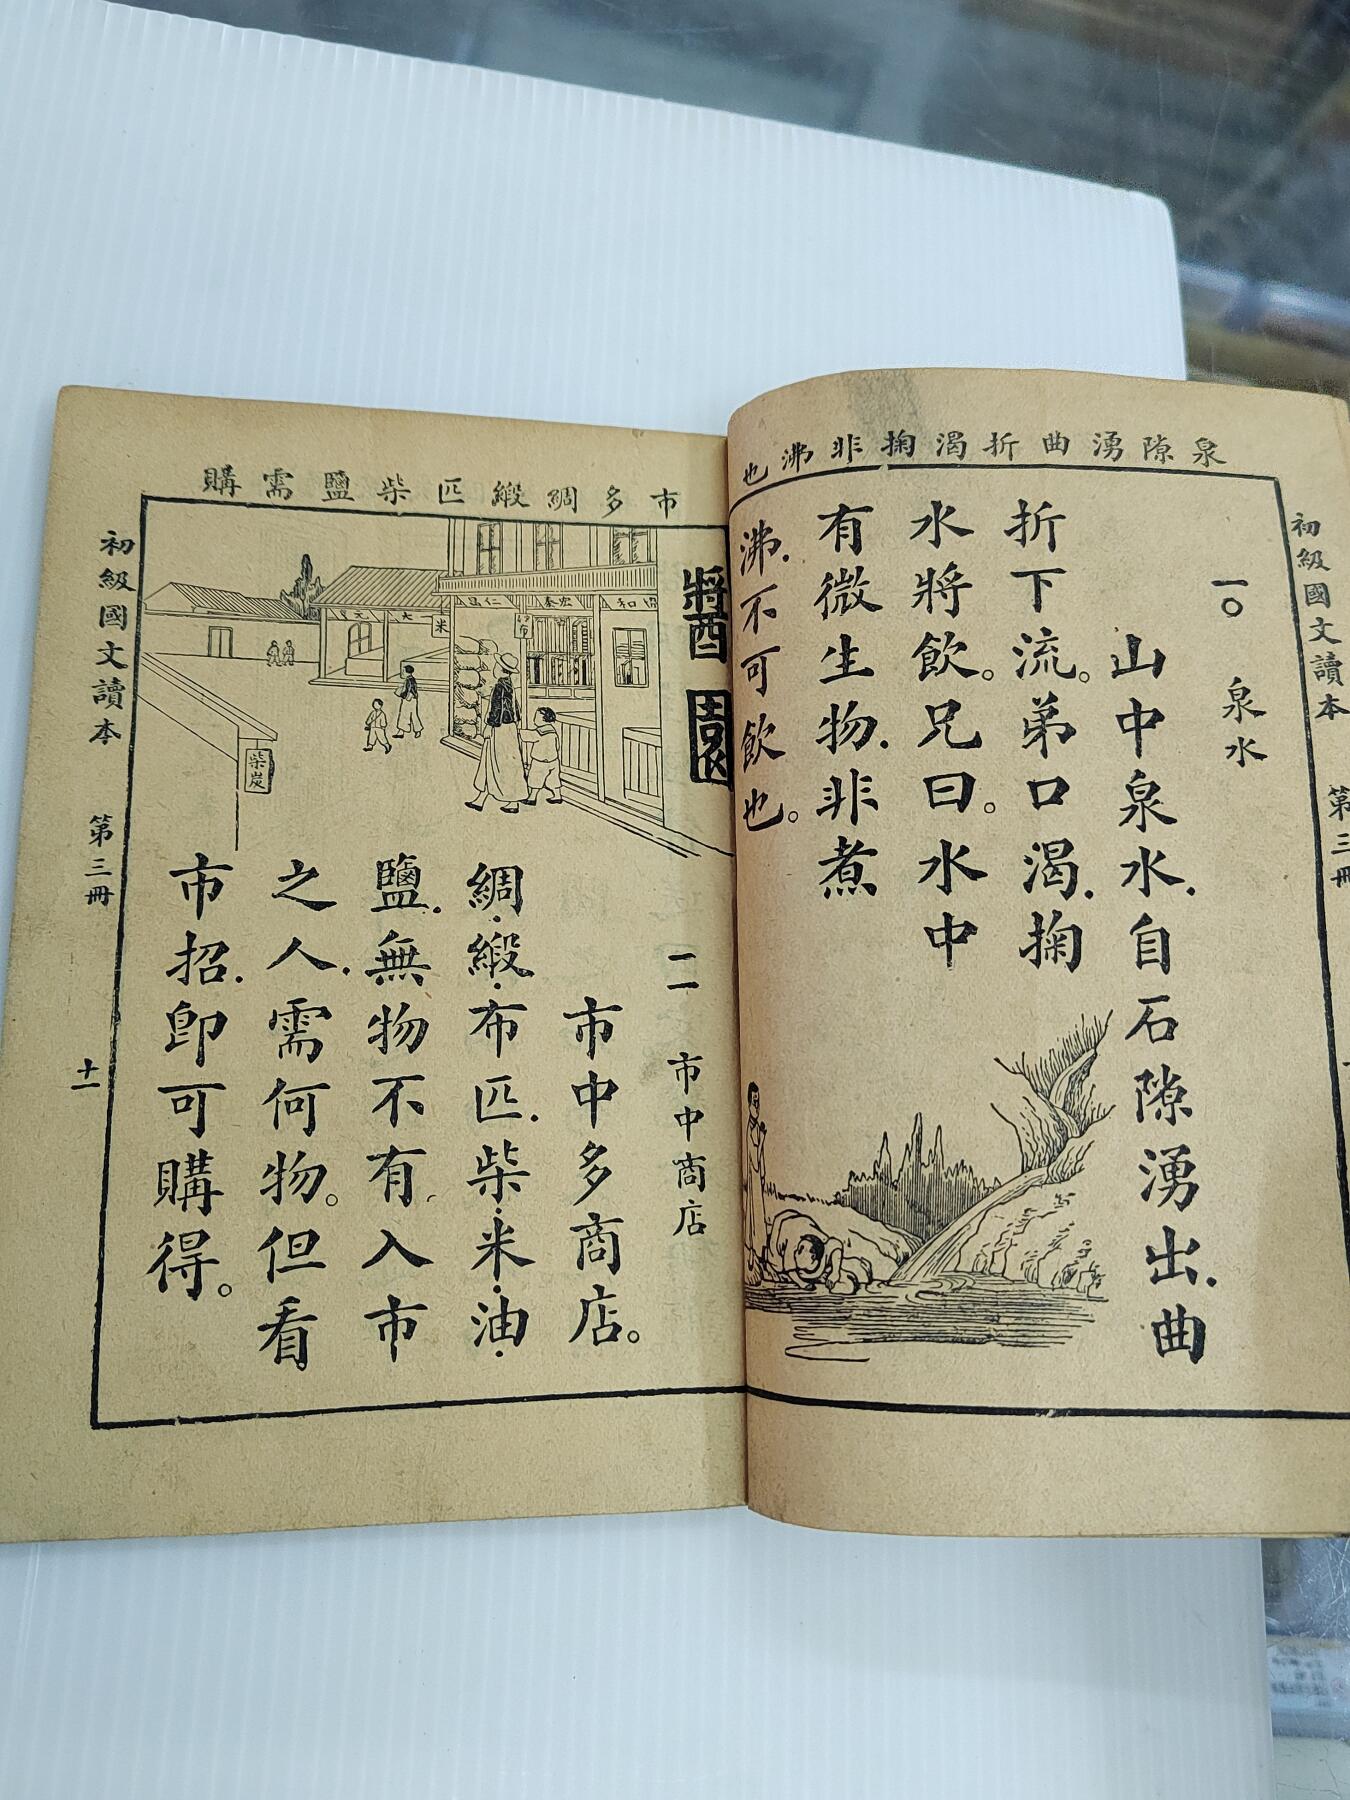 泉隙湧曲折渴掬非沸也
初級國文讀本 第三冊
一〇 泉水
山中泉水.自石隙湧出.曲
折下流。弟口渴.掬
水將飲。兄曰。水中
有微生物.非煮
沸.不可飲也。
市多綢緞匹柴鹽需購
醬園
協和
宏泰
仁昌
米
大
元
柴炭
一一 市中商店
市中多商店。
綢.緞.布匹.柴.米.油.
鹽.無物不有.入市
之人.需何物。但看
市招.即可購得。
初級國文讀本 第三冊 十一